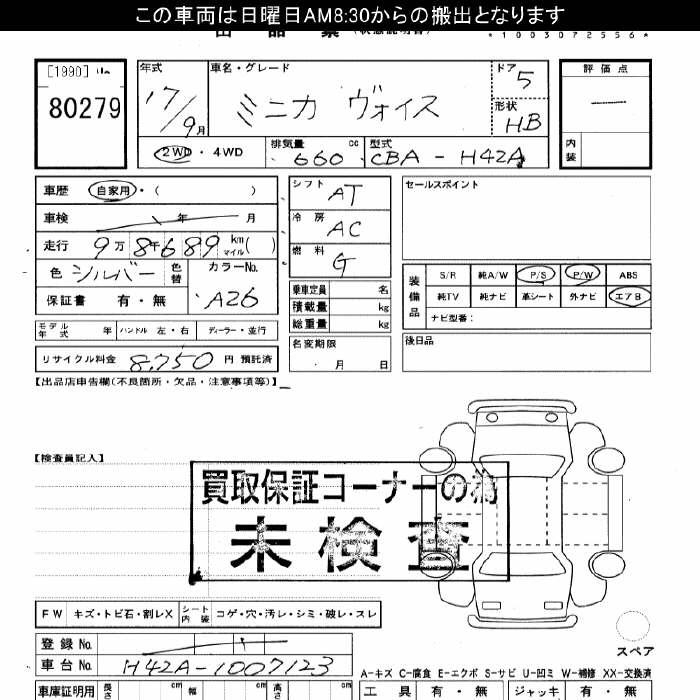 この車両は日曜日AM8:30からの搬出となります
*1003072556*
[1990]
80279
年式 車名・グレード ドア 評価点
17/9月 ミニカ ヴォイス 5
形状 HB
2WD・4WD 排気量 660 cc 型式 CBA-H42A
内装
車歴 自家用・( )
車検 年 月
走行 9万8千689 km マイル( )
色 シルバー 色替 カラーNo. A26
保証書 有・無
モデル年式 年 ハンドル 左・右 ディーラー・並行
リサイクル料金 8,750 円 預託済
シフト AT
冷房 AC
燃料 G
乗車定員 名
積載量 kg
総重量 kg
名変期限 月 日
セールスポイント
装備品 S/R 純A/W P/S P/W ABS
純TV 純ナビ 革シート 外ナビ エアB
ナビ型番:
後日品
【出品店申告欄(不良箇所・欠品・注意事項等)】
【検査員記入】
買取保証コーナーの為
未検査
FW キズ・トビ石・割レX シート内装 コゲ・穴・汚レ・シミ・破レ・スレ
登録No.
車台No. H42A-1007123
スペア
A-キズ C-腐食 E-エクボ S-サビ U-凹ミ W-補修 XX-交換済
車庫証明用 長さ cm 幅 cm 高さ cm
工具 有・無 ジャッキ 有・無